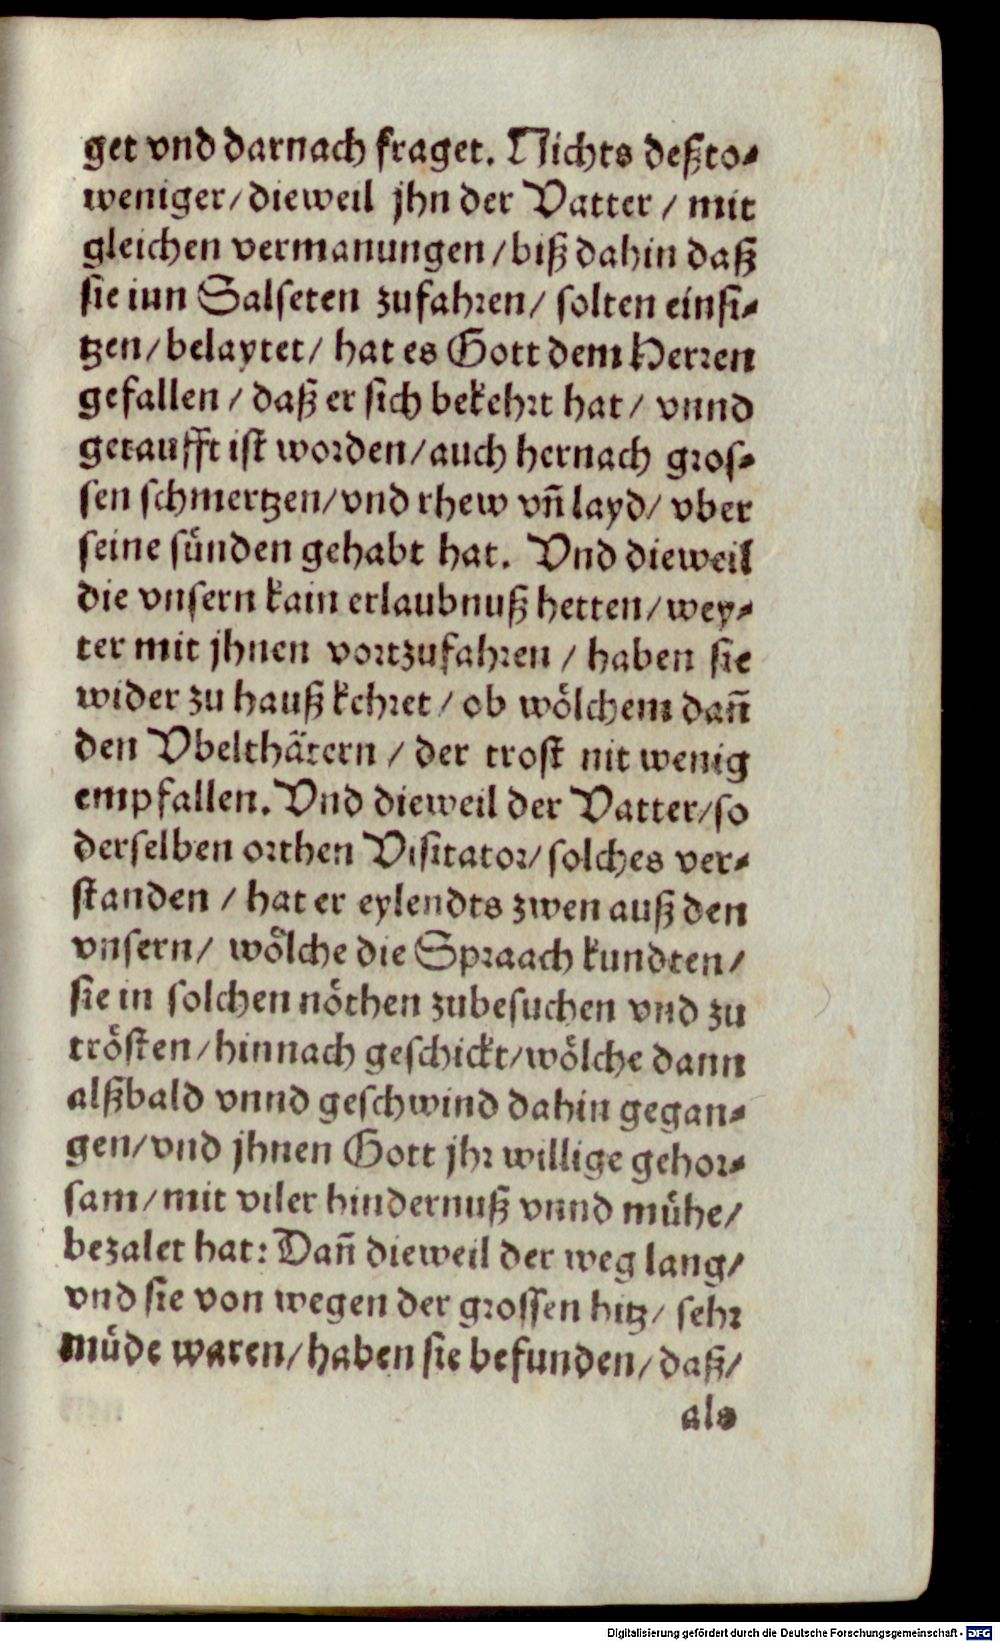 get vnd darnach fraget. Nichts deßto-
weniger/dieweil jhn der Vatter / mit
gleichen vermanungen /biß dahin daß
sie inn Salseten zufahren/ solten einsi-
tzen/belaytet/ hat es Gott dem Herren
gefallen / daß er sich bekehrt hat/ vnnd
getaufft ist worden/auch hernach gros-
sen schmertzen/vnd rhew vñ layd/ vber
seine sünden gehabt hat. Vnd dieweil
die vnsern kain erlaubnuß hetten/wey-
ter mit jhnen vortzufahren / haben sie
wider zu hauß kehret / ob wölchem dañ
den Vbelthätern / der trost nit wenig
empfallen. Vnd dieweil der Vatter/so
derselben orthen Visitator/ solches ver-
standen / hat er eylendts zwen auß den
vnsern/ wölche die Spraach kundten/
sie in solchen nöthen zubesuchen vnd zu
trösten/hinnach geschickt/wölche dann
alßbald vnnd geschwind dahin gegan-
gen/vnd jhnen Gott jhr willige gehor-
sam/mit viler hindernuß vnnd mühe/
bezalet hat: Dañ dieweil der weg lang/
vnd sie von wegen der grossen hitz/ sehr
müde waren/haben sie befunden/daß/
als
Digitalisierung gefördert durch die Deutsche Forschungsgemeinschaft - DFG